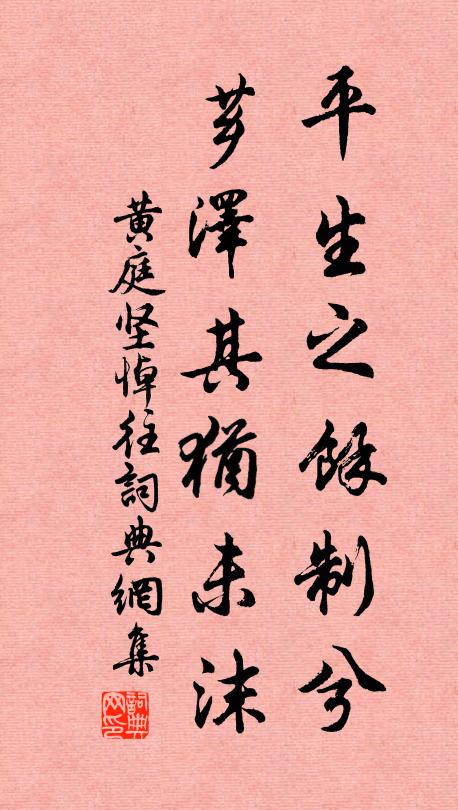 平生之餘制兮
芗澤其猶未沬
黄庭坚悼往詞典網集
詞典
网印